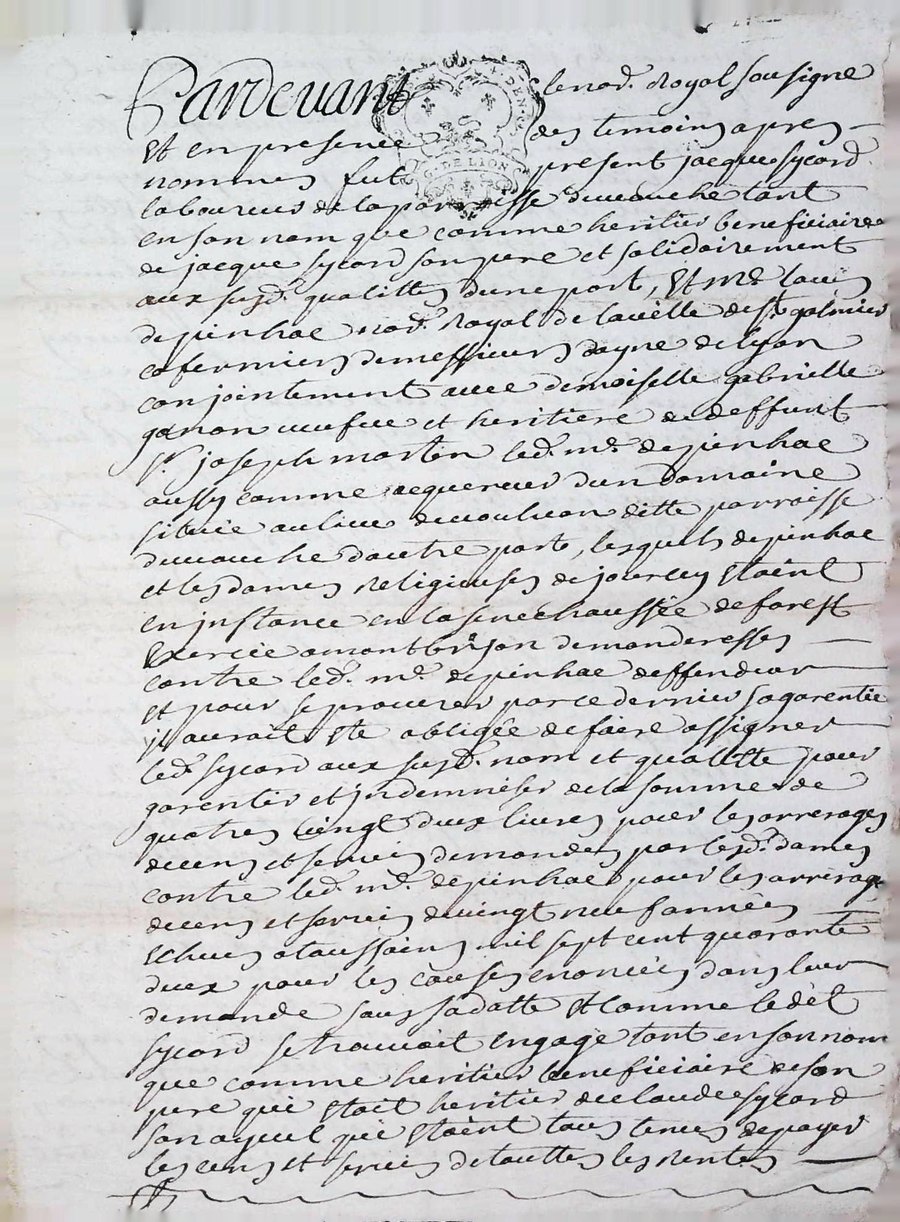 Pardevant le nore. Royal sousigne
DEN.
G. DE LION
Et en presence des temoins apres
nommes fut present jacque sycard
laboureur de la parroisse de mouche tant
en son nom que comme heritier beneficiaire
de jacque sycord son pere et solidairement
aux susd. qualittes dune part, Et Me. louis
depinhac nore. Royal de la ville de st galmier
cofermier de messieurs dayne de lyon
conjointement avec demoiselle gabrielle
ganon veufve et heritiere de deffunt
sr. joseph marten led. me. depinhac
aussy comme acquereur dun domaine
située au lieu de ditte parroisse
dautre part, lesquels depinhac
et les dames religieuses de jourcey Etoint
en jnstance en la senechaussée de forest
Exercée a montbrison demanderesses
contre led. me. depinhac deffendeur
et pour se procurer par ce dernier sa garentie
jl auroit Eté obligée de faire assigner
led. sycard aux susd. nom et qualitte pour
garentir et jndemniser de la somme de
quatres vingt deux livres pour les arrerages
de cens et servis demandes par lesd. dames
contre led. me. depinhac pour les arrerages
de cens et servis de vingt neuf années
Echues a toussains mil sept cent quarante
deux pour les causes enoncées dans leur
demande sous sa datte Et comme ledit
sycord se trouvoit Engagé tant en son nom
que comme heritier beneficiaire de son
pere qui Etoit heritier de claude sycord
son ayeul qui Etoint tous tenus de payer
les cens et servis de touttes les rentes